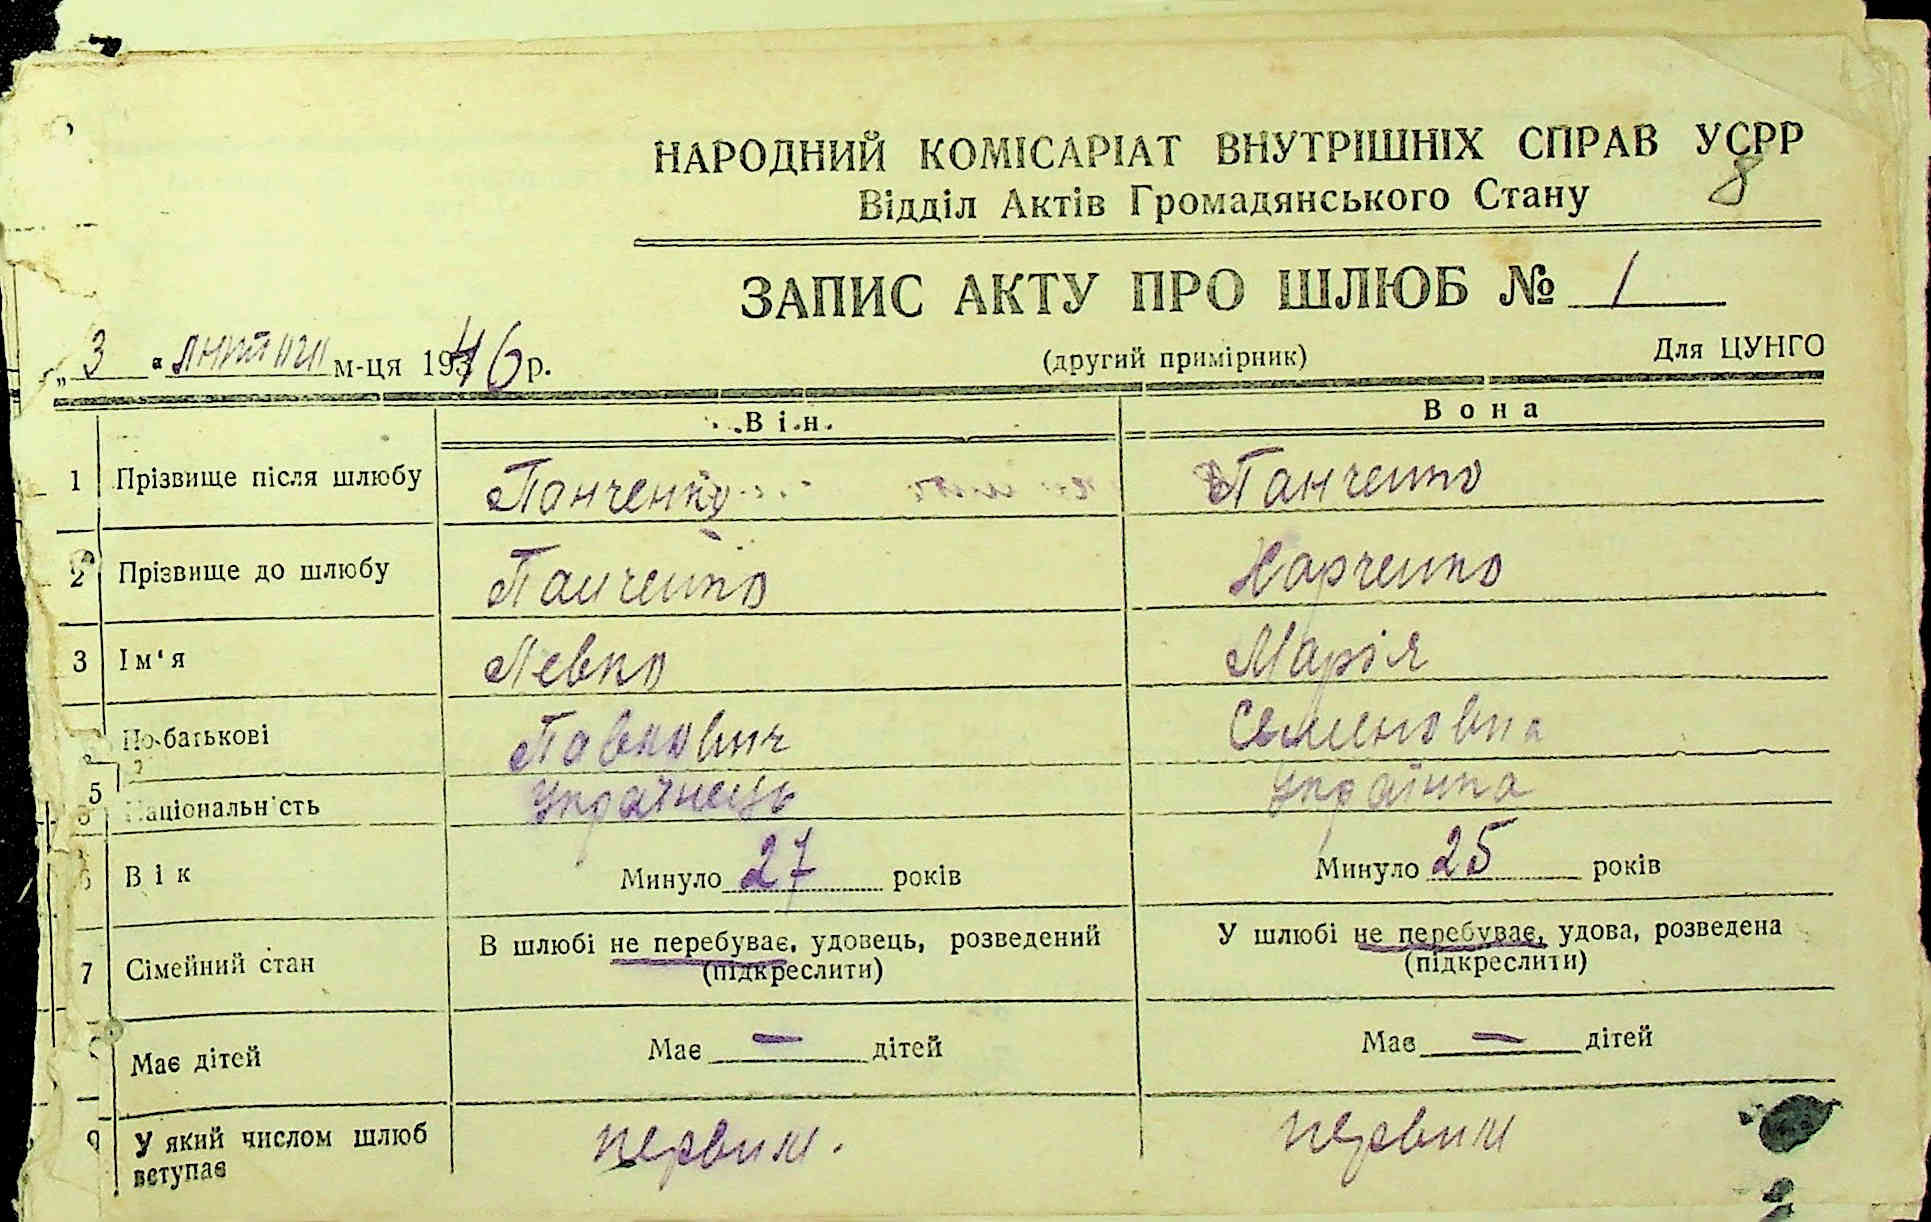 НАРОДНИЙ КОМІСАРІАТ ВНУТРІШНІХ СПРАВ УСРР
8
Відділ Актів Громадянського Стану
ЗАПИС АКТУ ПРО ШЛЮБ № 1
„3" лютого м-ця 1946 р.
(другий примірник)
Для ЦУНГО
Він
Вона
1 Прізвище після шлюбу Панченко Панченко
2 Прізвище до шлюбу Панченко Харченко
3 Ім'я Левко Марія
По-батькові Павлович Семеновна
5 Національність Українець Українка
6 Вік Минуло 27 років Минуло 25 років
7 Сімейний стан В шлюбі не перебуває, удовець, розведений (підкреслити) У шлюбі не перебуває, удова, розведена (підкреслити)
Має дітей Має — дітей Має — дітей
9 У який числом шлюб вступає первим. первим